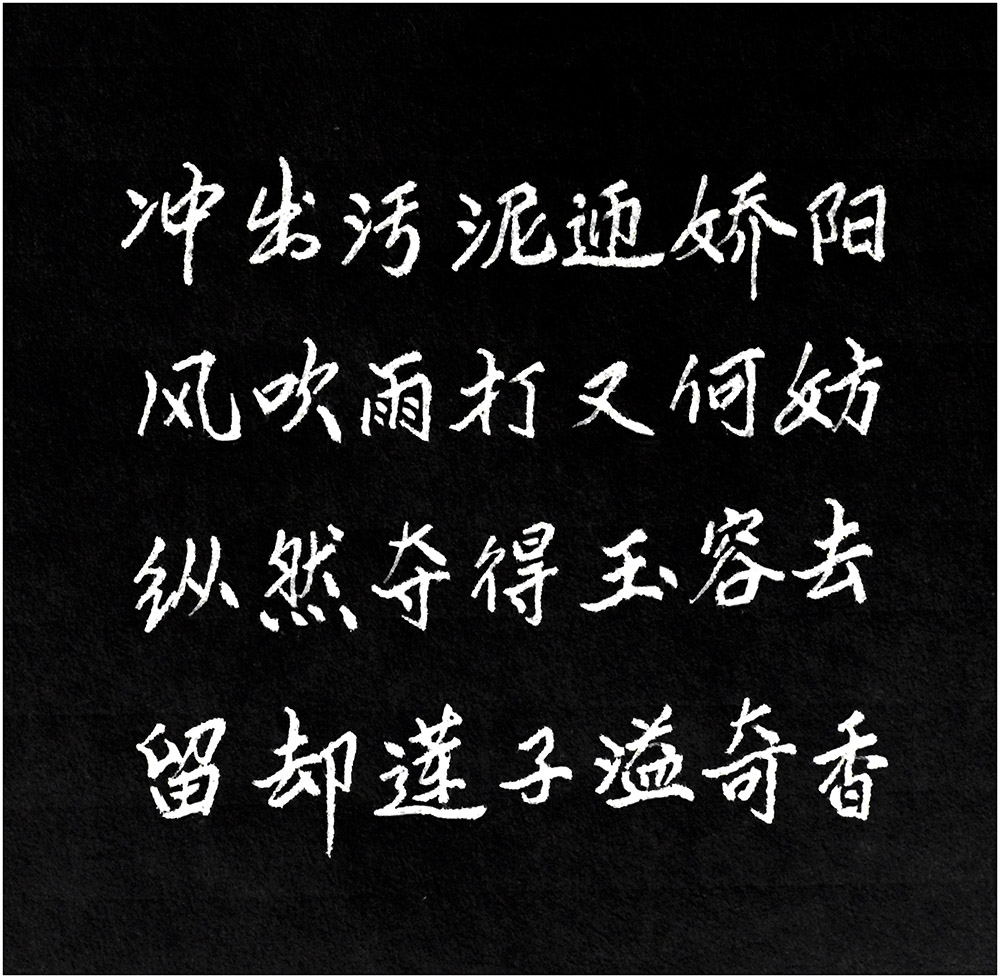 冲出污泥迎娇阳
风吹雨打又何妨
纵然夺得玉容去
留却莲子溢奇香